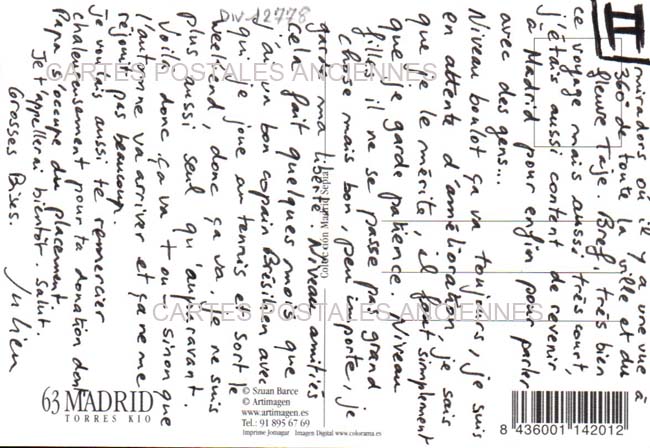 Div-12778
II
miradors où il y a une vue à
360° de toute la ville et du
fleuve Taje. Bref, très bien
ce voyage mais aussi très court,
j'étais aussi content de revenir
à Madrid pour enfin pour parler
avec des gens...
Niveau boulot ça va toujours, je suis
en attente d'amélioration, je sais
que je le mérite, il faut simplement
que je garde patience. Niveau
fille il ne se passe pas grand
chose mais bon, peu importe, je
garde ma liberté. Niveau amitiés
Cela fait quelques mois que
j'ai un bon copain Brésilien avec
qui je joue au tennis et sort le
weekend, donc ça va, je ne suis
plus aussi seul qu'auparavant.
Voilà donc ça va + ou - sinon que
l'automne va arriver et ça ne me
réjouis pas beaucoup.
Je voulais aussi te remercier
chaleureusement pour ta donation dont
Papa s'occupe du placement.
Je t'appellerai bientôt. Salut.
Grosses Bises.
Julien
CARTES POSTALES ANCIENNES
CARTES POSTALES ANCIENNES
Colección Madrid Sepia
63 MADRID
TORRES KIO
© Szuan Barce
© Artimagen
www.artimagen.es
Tel.: 91 895 67 69
Imprime Jomagar Imagen Digital www.colorama.es
8 436001 142012